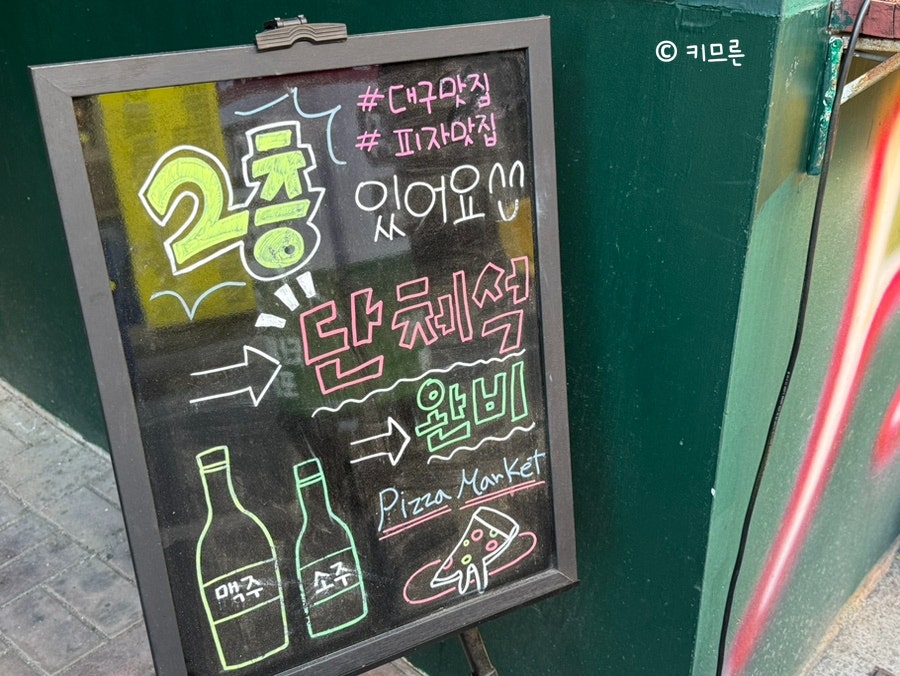 © 키므른
#대구맛집
# 피자맛집
2층
있어요
단체석
완비
Pizza Market
맥주
소주